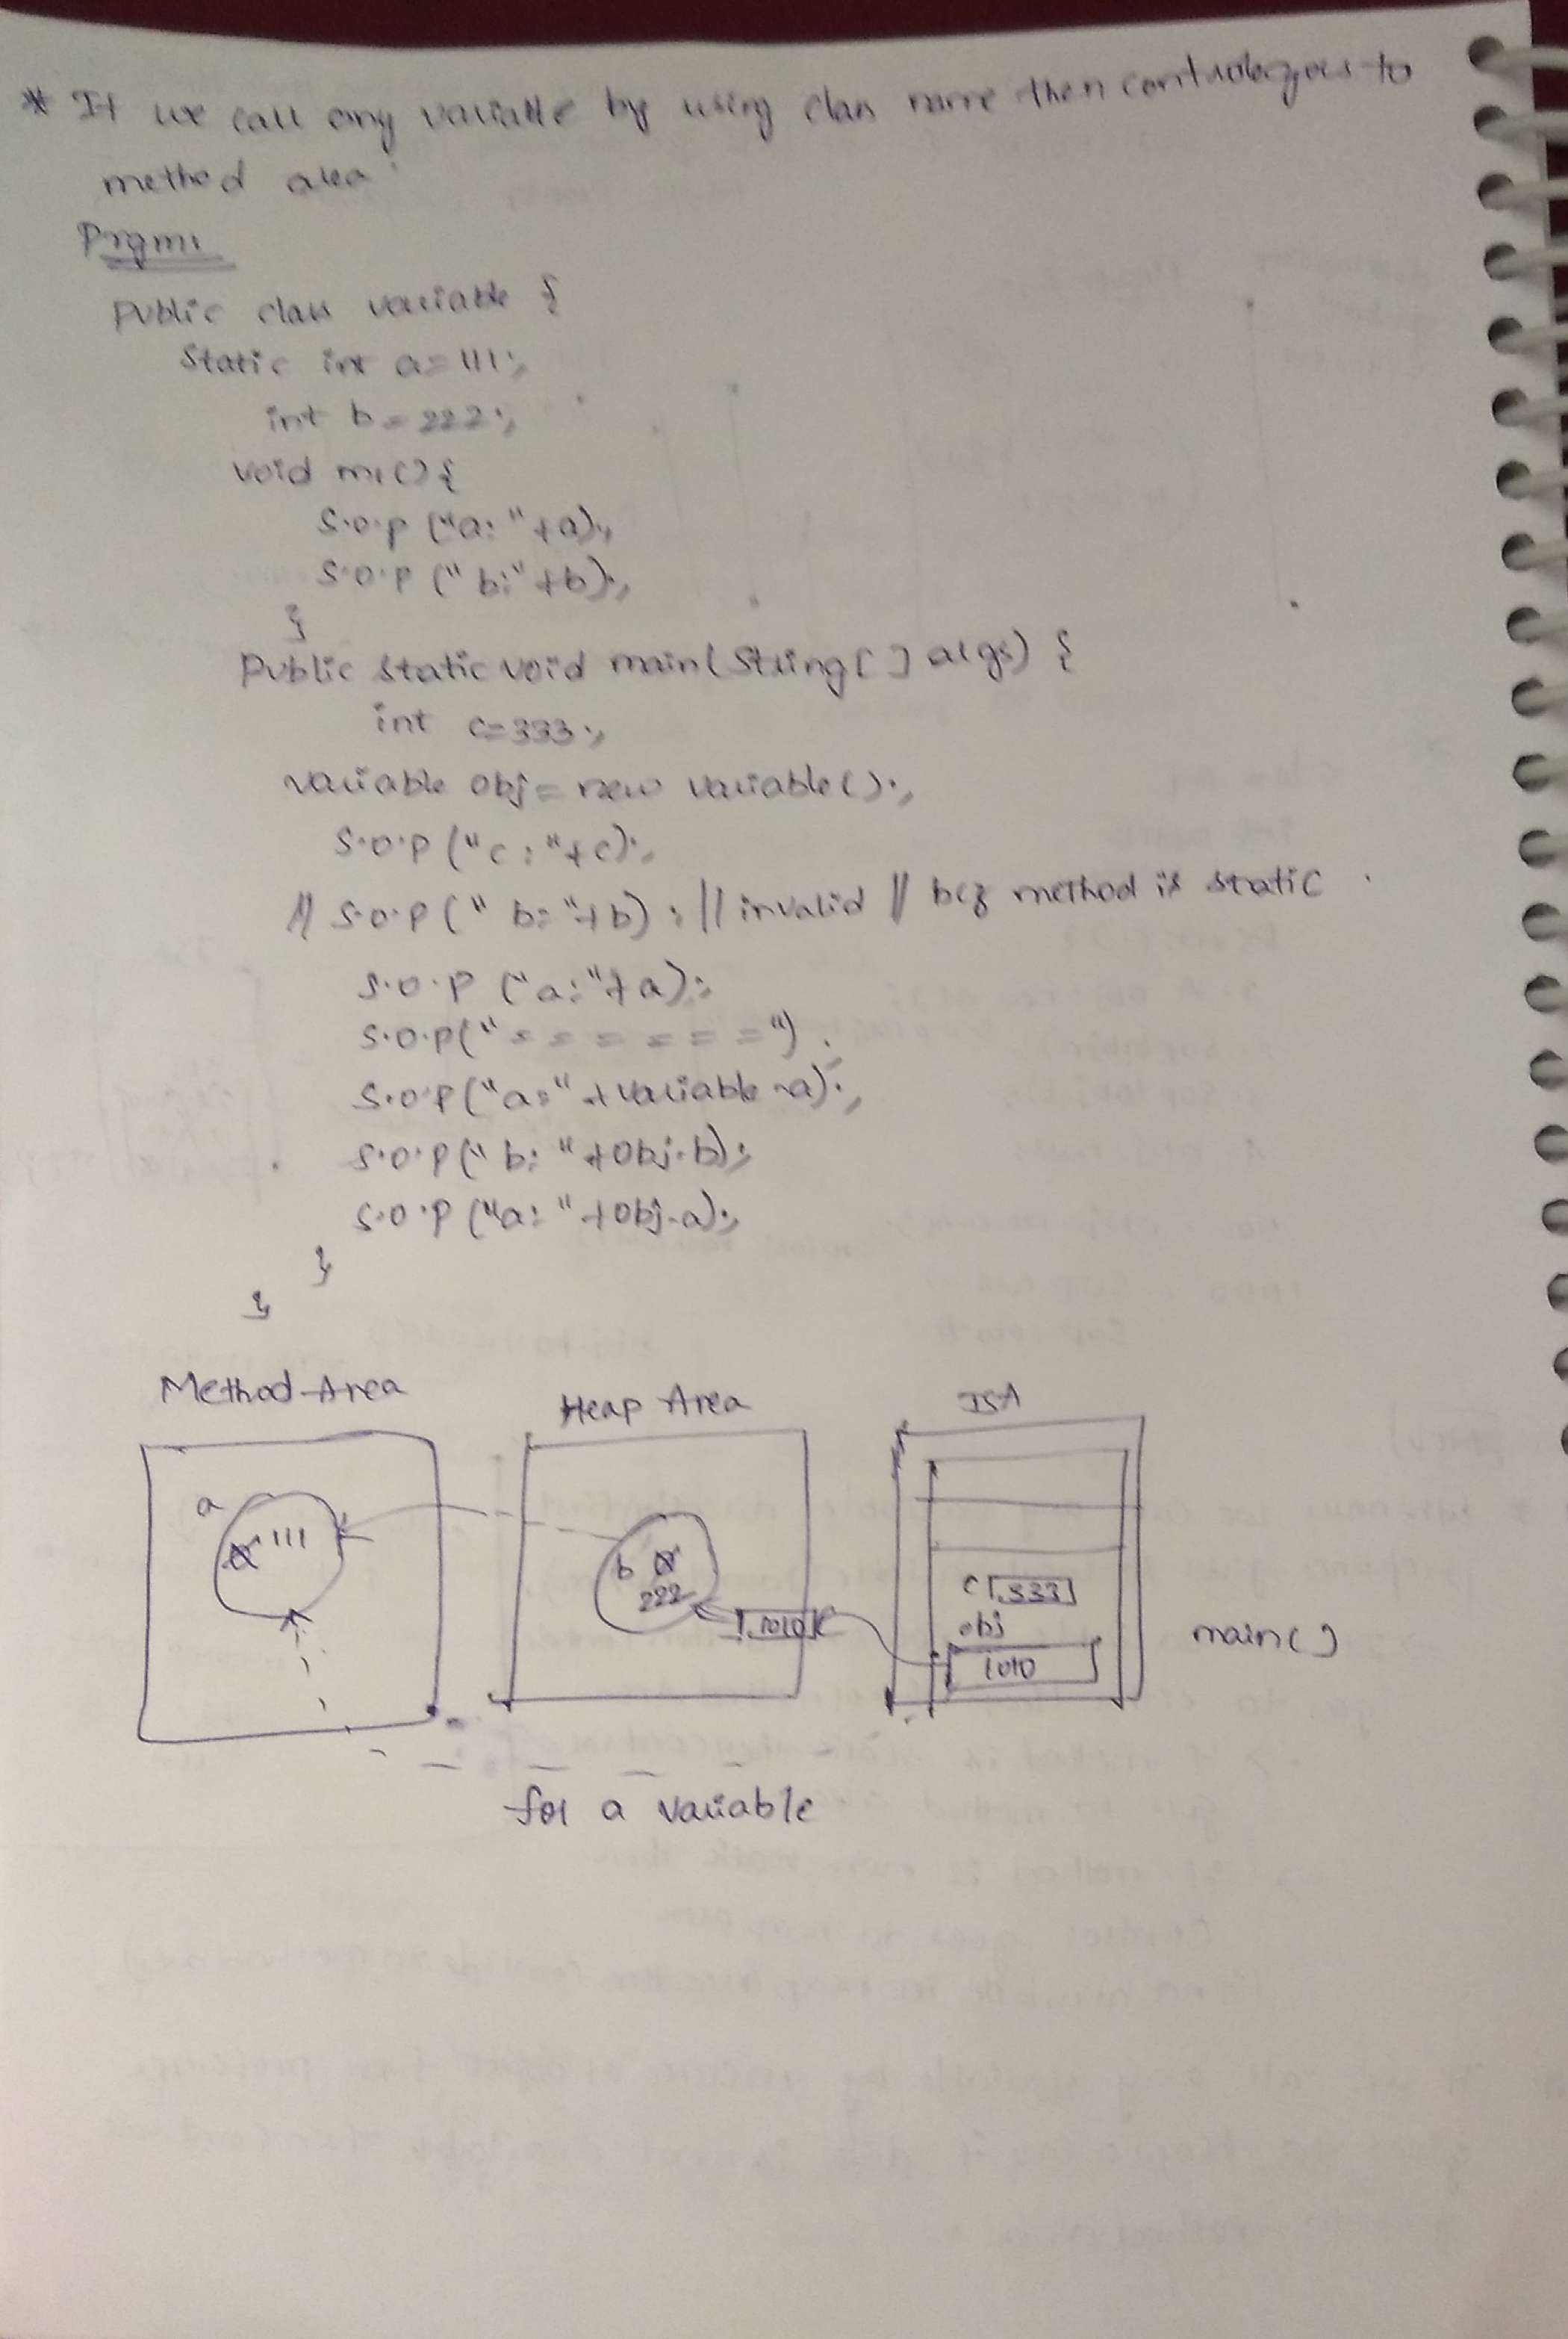 * If we call any variable by using class name then control goes to
method area.
Prgm:
Public class variable {
Static int a=111;
int b=222;
void m1() {
S.o.p ("a: "+a);
S.o.p (" b:"+b);
}
Public static void main(String[] args) {
int c=333;
variable obj = new variable();
S.o.p ("c: "+c);
// S.o.p (" b: "+b) ; // invalid // bcz method is static
S.o.p ("a:"+a);
S.o.p("= = = = = =") ;
S.o.p("a:" +variable.a);
S.o.p(" b: " +obj.b);
S.o.p ("a: " +obj.a);
}
}
Method Area Heap Area JSA
a 111
b 222
1010
c 333
obj
1010
main()
for a variable